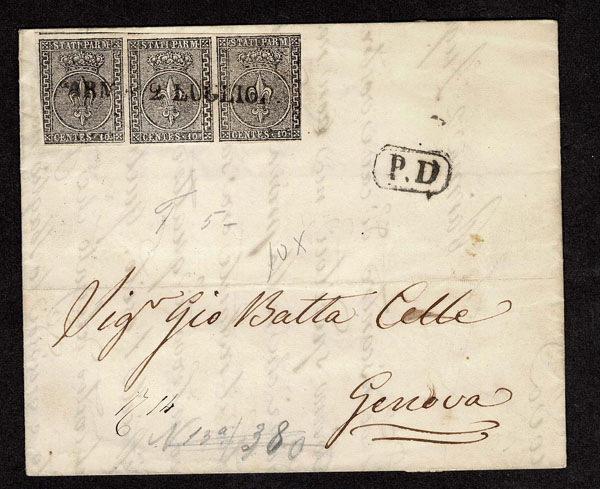 STATI PARM. STATI PARM. STATI PARM.
2 LUGLIO
CENTES. 10 CENTES. 10 CENTES. 10
P.D
5-
10x
Sigr Gio Batta Celle
Genova
N 13a/380